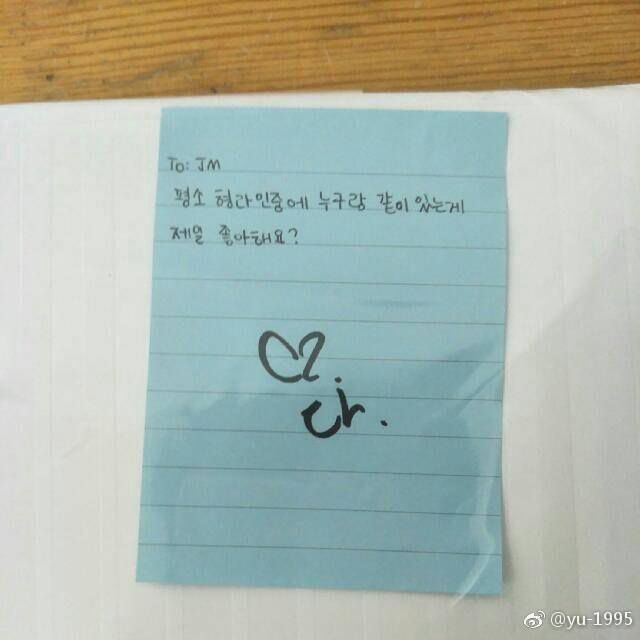 To: JM
평소 형라인중에 누구랑 같이 있는게
제일 좋아해요?
@yu-1995